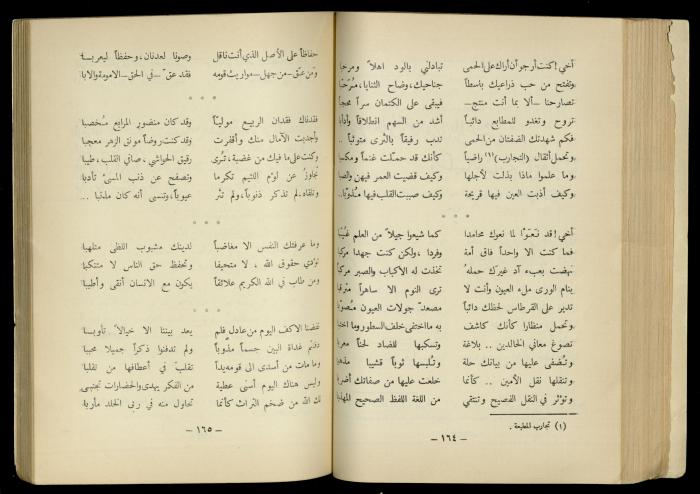 أخي! كنت أرجو أن أراك على الحمى تبادلني بالود أهلاً ومرحبا
وتفتح من حب ذراعيك باسطاً جناحيك، وضاح الثنايا،
تصارحنا - ألا بما أنت منتج - فيبقى على الكتمان سراً
تروح وتغدو للمطابع دائباً أشد من السهم انطلاقاً
فكم شهدتك الضفتان من الحمى تدب رقيقاً بالثرى متوثباً ..
وتحمل أثقال (التجارب)(١) راضياً كأنك قد حملت غنماً
وما علموا ماذا بذلت لأجلها وكيف قضيت العمر فيهن
وكيف أذبت العين فيها قريحة وكيف صببت القلب فيها
* * *
أخي! قد نعوا لما نعوك محامداً كما شيعوا جيلاً من العلم
فما كنت الا واحداً فاق أمة وفرداً، ولكن كنت جهداً
نهضت بعبء آد غيرك حمله تخذت له الأكباب والصبر
ينام الورى ملء العيون وأنت لا ترى النوم الا ساهراً
تدير على القرطاس لحظك دائباً مصعد جولات العيون
وتحمل منظاراً كأنك كاشف به ما اختفى خلف السطور وما
تصوغ معاني الخالدين .. بلاغة وتسكبها للضاد لحناً
وتضفي عليها من بيانك حلة وتلبسها ثوباً قشيباً
وتنقلها نقل الأمين .. كأنما خلعت عليها من صفاتك
وتؤثر في النقل الفصيح وتنتقي من اللغة اللفظ الصحيح
(١) تجارب المطبعة .
- ١٦٤ -
حفاظاً على الأصل الذي أنت ناقل وصوناً لعدنان، وحفظاً ليعربا
ومن عق - من جهل - مواريث قومه فقد عق - في الحق - الامومة والابا
* * *
فقدناك فقدان الربيع مولياً وقد كان منضور المرابع مخصبا
وأجدبت الآمال منك وأقفرت وقد كنت روضاً مونق الزهر معجبا
وكنت على ما فيك من غضبة، ترى رقيق الحواشي، صافي القلب، طيبا
تجاوز عن لؤم اللئيم تكرما وتصفح عن ذنب المسيء تأدبا
وتلقاه لم تذكر ذنوباً، ولم تثر عيوباً، وتنسى أنه كان مذنبا ..
* * *
وما عرفتك النفس الا مغاضباً لدينك مشبوب اللظى متلهبا
تؤدي حقوق الله ، لا متحيفا وتحفظ حق الناس لا متنكبا
ومن طاب في الله الكريم علائقاً يكون مع الانسان أنقى وأطيبا
* * *
نفضنا الاكف اليوم من عادل يعد بيننا الا خيالاً
غداة البين جسماً ولم تدفنوا ذكراً جميلا محببا
وما مات من أسدى الى قومه يداً تقلب في أعطافها من تقلبا
وليس هناك اليوم أسنى عطية من الفكر يهدي والحضارات تجتبى
لك الله من ضخم التراث كأنما تحاول منه في ربى الخلد مأربا
- ١٦٥ -